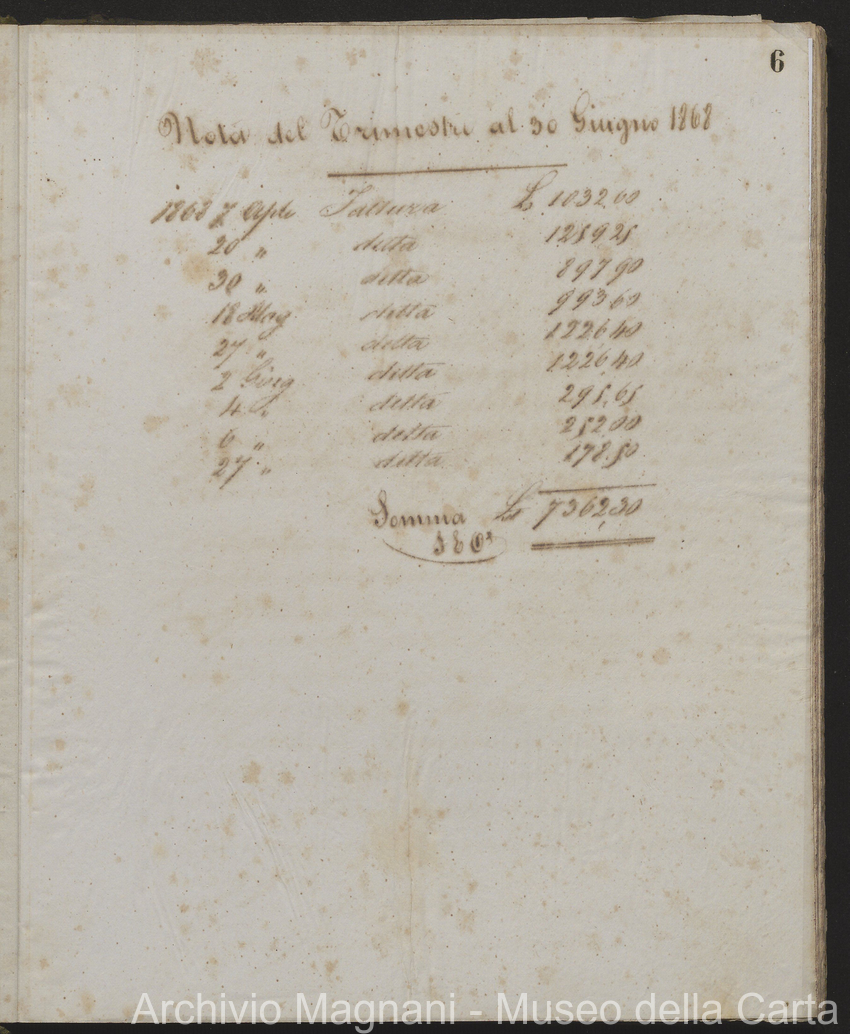 6
Nota del Trimestre al 30 Giugno 1868
1868 7 Aple Fattura L 1032 60
20 " detta 1259 25
30 " detta 897 90
18 Mag detta 993 60
27 " detta 1226 40
2 Giug detta 1226 40
4 " detta 295,65
6 " detta 252 00
27 " detta 178,50
Somma L 7362,30
Archivio Magnani - Museo della Carta